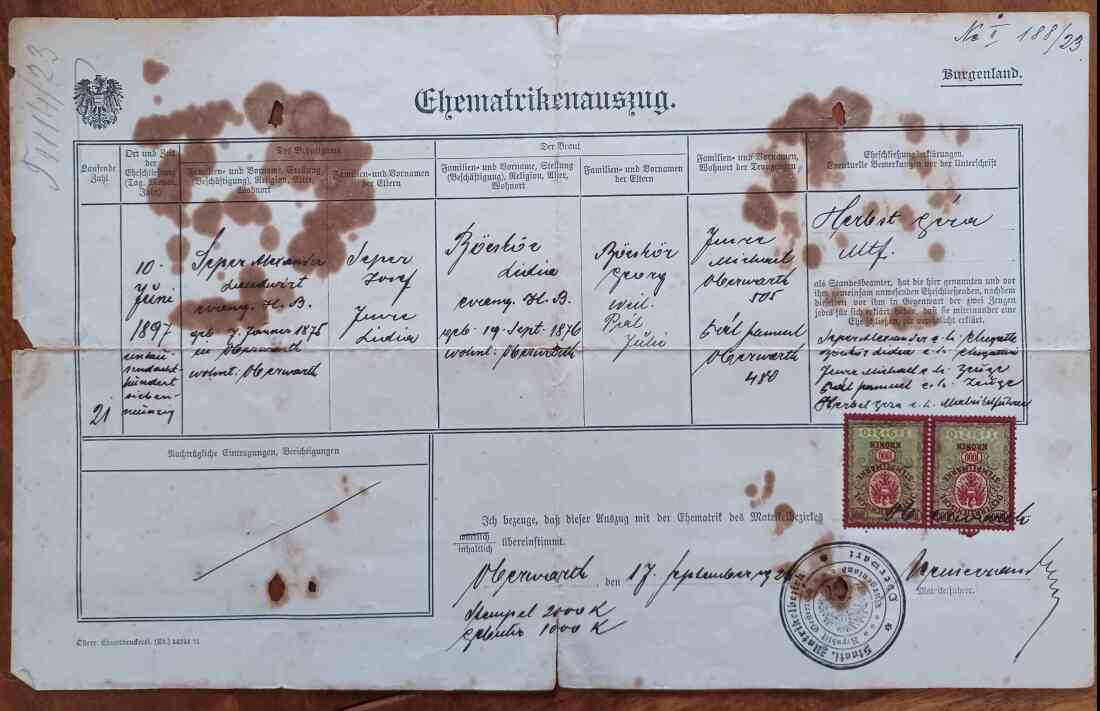 No I 188/23
1114/23
Burgenland.
Ehematrikenauszug.
Laufende Zahl
Ort und Zeit der Eheschließung (Tag, Monat, Jahr)
Des Bräutigams
Familien- und Vorname, Stellung (Beschäftigung), Religion, Alter, Wohnort
Familien- und Vornamen der Eltern
Der Braut
Familien- und Vorname, Stellung (Beschäftigung), Religion, Alter, Wohnort
Familien- und Vornamen der Eltern
Familien- und Vornamen, Wohnort der Trauzeugen
Eheschließungserklärungen.
Eventuelle Bemerkungen vor der Unterschrift
21
10.
Juni
1897
eintau
sendacht
hundert
sieben
neunzig
Seper Alexander
Landwirt
evang. H. B.
geb. 7. Jänner 1875
in Oberwarth
wohnt: Oberwarth
Seper
Josef
Imre
Lidia
Böcskör
Lidia
evang. H. B.
geb. 19. Sept. 1876
wohnt: Oberwarth
Böcskör
Georg
weil.
Pál
Julia
Imre
Michael
Oberwarth
505
Samuel
Oberwarth
480
Herbst Géza
Mtf.
als Standesbeamter, hat die hier genannten und vor
ihm gemeinsam anwesenden Eheschließenden, nachdem
dieselben vor ihm in Gegenwart der zwei Zeugen
jedes für sich erklärt haben, daß sie miteinander eine
Ehe schließen, für verehelicht erklärt.
Seper Alexander e. h. Ehegatte
Böcskör Lidia e. h. Ehegattin
Imre Michael e. h. Zeuge
Samuel e. h. Zeuge
Herbst Geza e. h. Matrikelführer
Nachträgliche Eintragungen, Berichtigungen
1000
KRONEN
STEMPELMARKE
1000
KRONEN
STEMPELMARKE
Ich bezeuge, daß dieser Auszug mit der Ehematrik des Matrikelbezirkes
wörtlich
inhaltlich
übereinstimmt.
Oberwarth den 17. September 192
Stempel 2000 K
Gebühr 1000 K
Matrikelführer.
Staatl. Matrikelbezirk
Österr. Staatsdruckerei. (St.) 14244 21